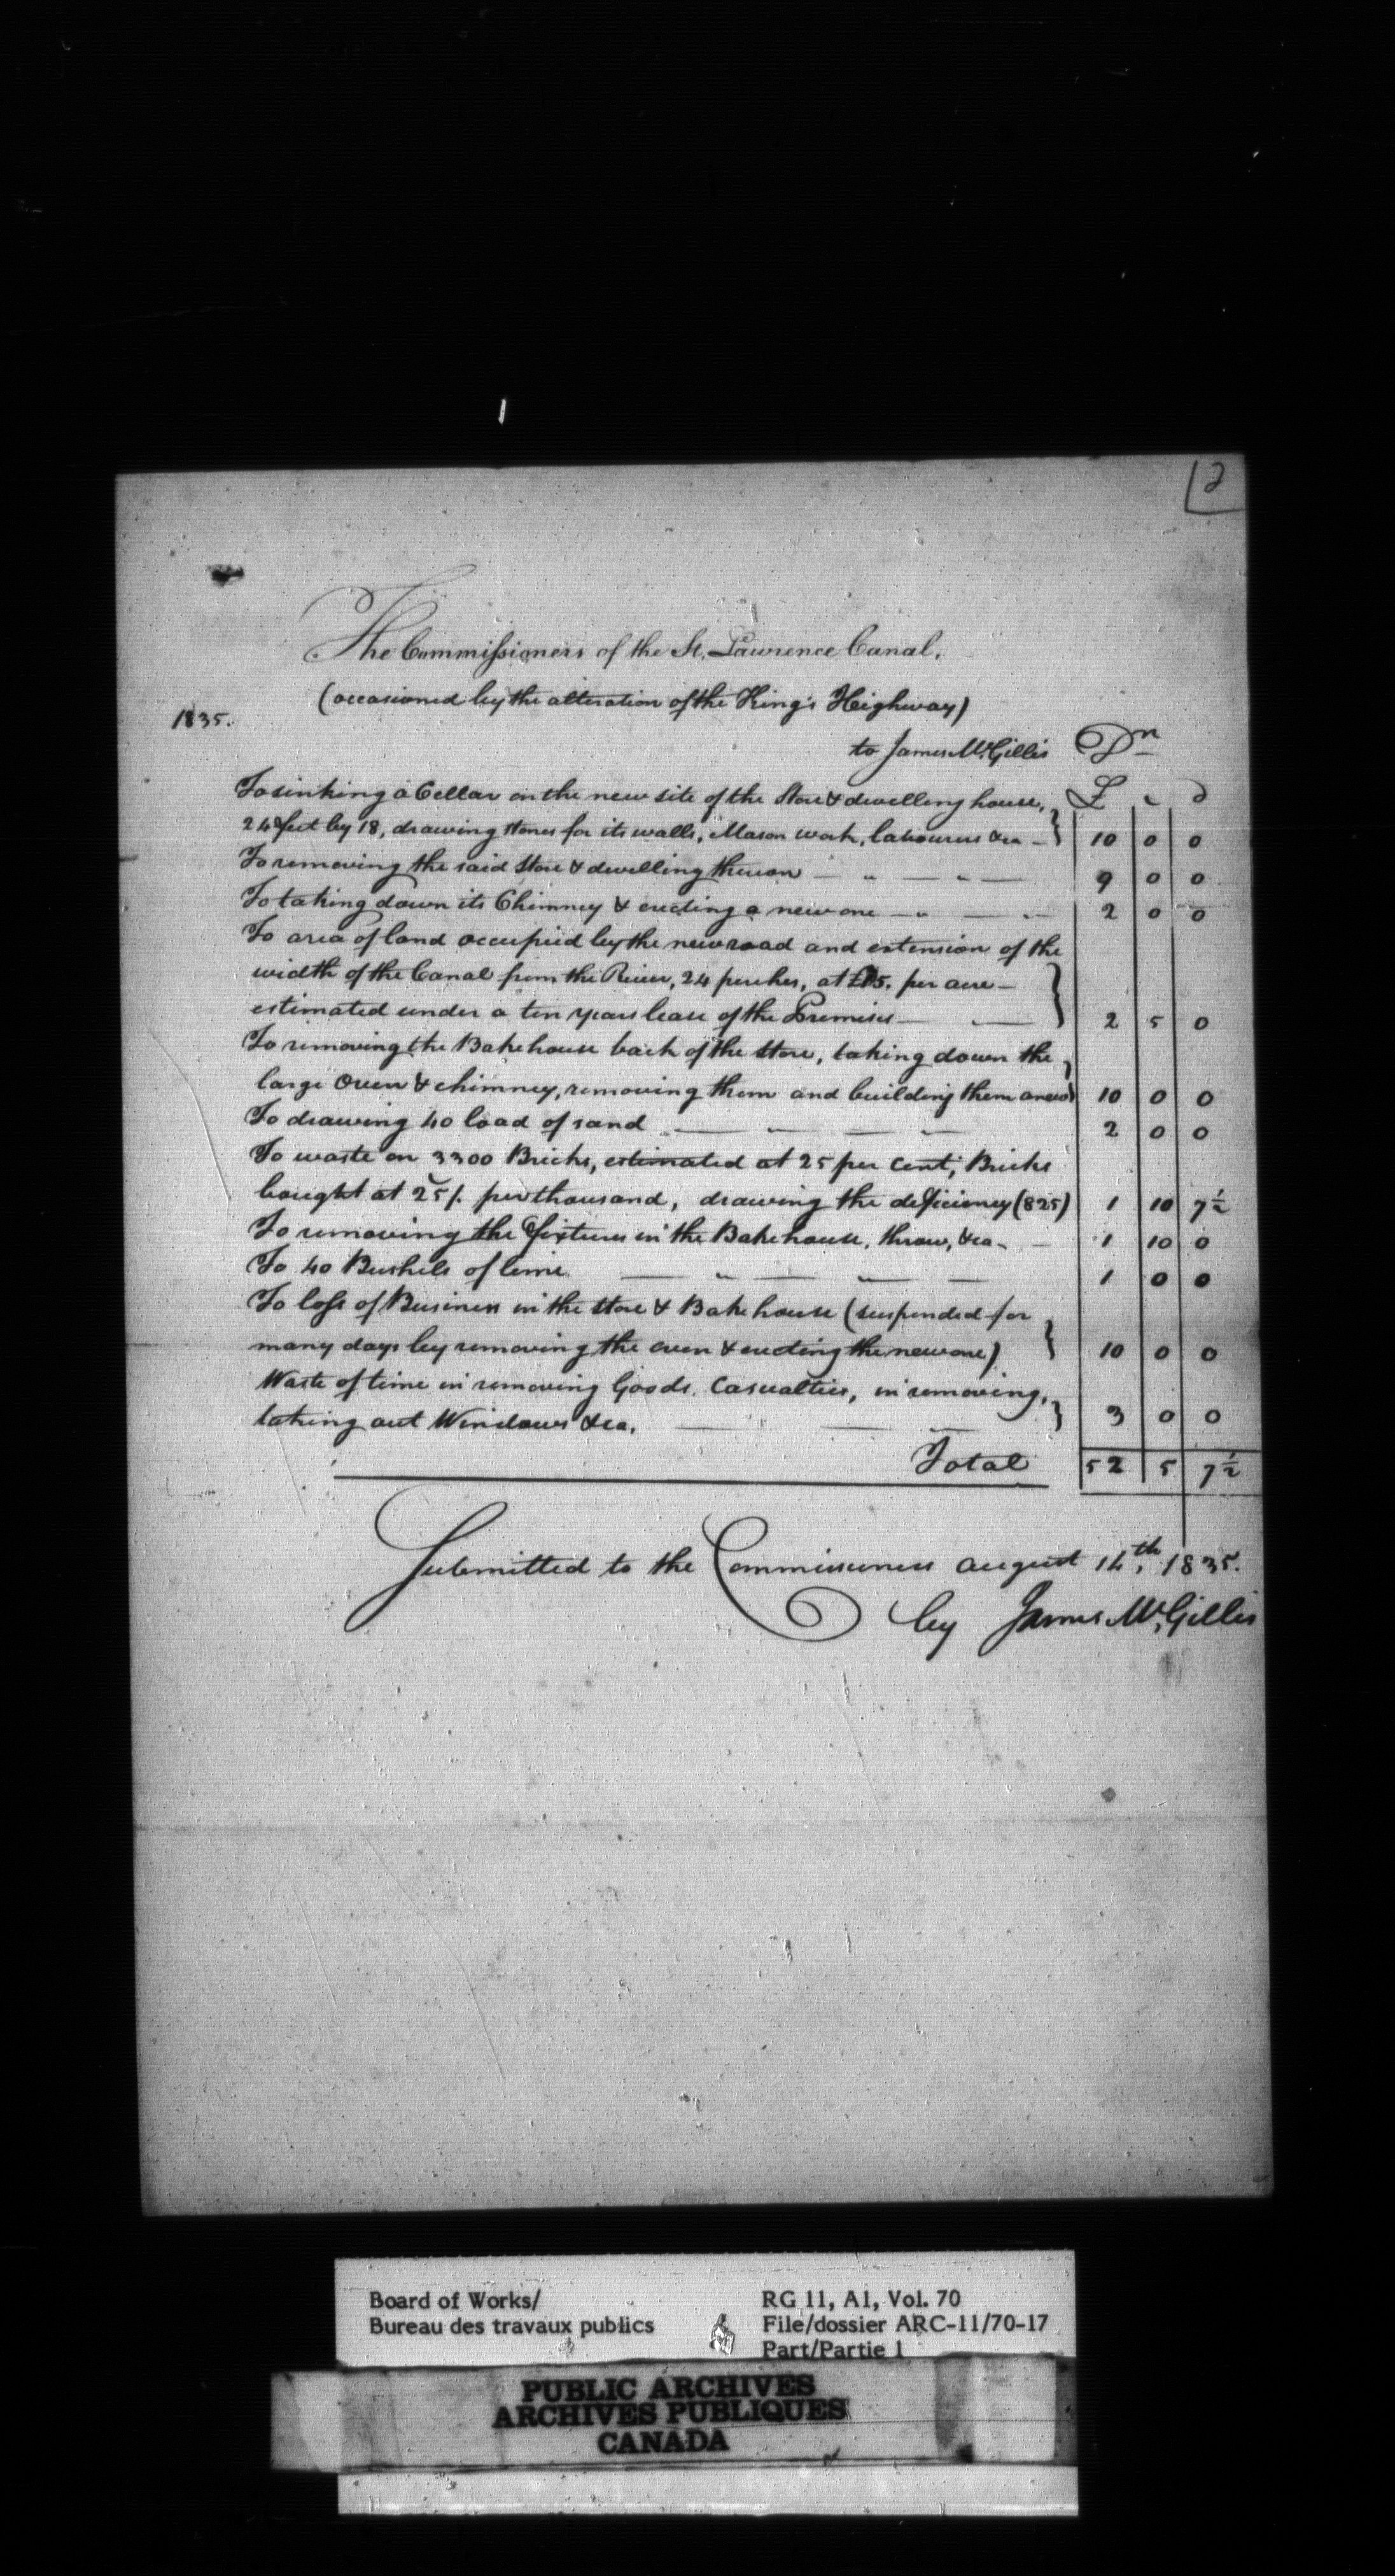 2
The Commissioners of the St. Lawrence Canal,
(occasioned by the alteration of the King's Highway)
1835.
to James McGillis Dr
To sinking a Cellar on the new site of the Store & dwelling house, £ s d
24 feet by 18, drawing stones for its walls, Mason work, labourers &ca — 10 0 0
To removing the said Store & dwelling thereon — " — " — 9 0 0
To taking down its Chimney & erecting a new one — " — " 2 0 0
To area of land occupied by the new road and extension of the
width of the Canal from the River, 24 perches, at £15. per acre —
estimated under a ten years lease of the Premises — — 2 5 0
To removing the Bakehouse back of the Store, taking down the
large Oven & chimney, removing them and building them anew 10 0 0
To drawing 40 load of sand — " — " 2 0 0
To waste on 3300 Bricks, estimated at 25 per Cent; Bricks
bought at 25/. per thousand, drawing the deficiency (825) 1 10 7½
To removing the fixtures in the Bakehouse, throw, &ca. — 1 10 0
To 40 Bushels of lime — " — " — 1 0 0
To loss of Business in the store & Bakehouse (suspended for
many days by removing the oven & erecting the new one) 10 0 0
Waste of time in removing Goods. Casualties, in removing,
taking out Windows &ca. — — — 3 0 0
Total 52 5 7½
Submitted to the Commissioners august 14th, 1835.
by James McGillis
Board of Works/
Bureau des travaux publics
RG 11, A1, Vol. 70
File/dossier ARC-11/70-17
Part/Partie 1
PUBLIC ARCHIVES
ARCHIVES PUBLIQUES
CANADA